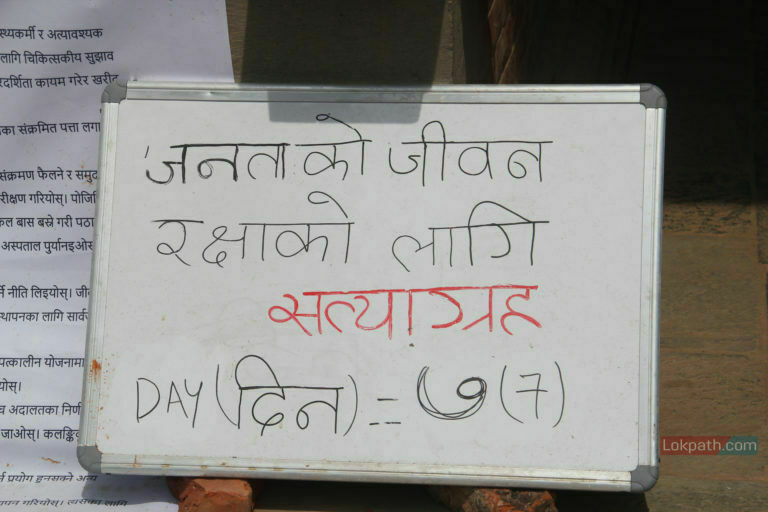 स्थ्यकर्मी र अत्यावश्यक
लागि चिकित्सकीय सुझाव
रदर्शिता कायम गरेर खरीद
का संक्रमित पत्ता लगा
संक्रमण फैलने र समुद
रीक्षण गरियोस्। पोजि
कल बास बस्ने गरी पठा
अस्पताल पुर्यानइओस
नीति लिइयोस्। जी
स्थापनका लागि सार्व
पत्कालीन योजनामा
योस्।
च अदालतका निर्ण
जाओस्। कलङ्कि
प्रयोग हुनसक्ने अन्य
गरियोस्। त्यसका लागि
'जनताको जीवन
रक्षाको लागि
सत्याग्रह
DAY (दिन) = ७ (7)
Lokpath.com